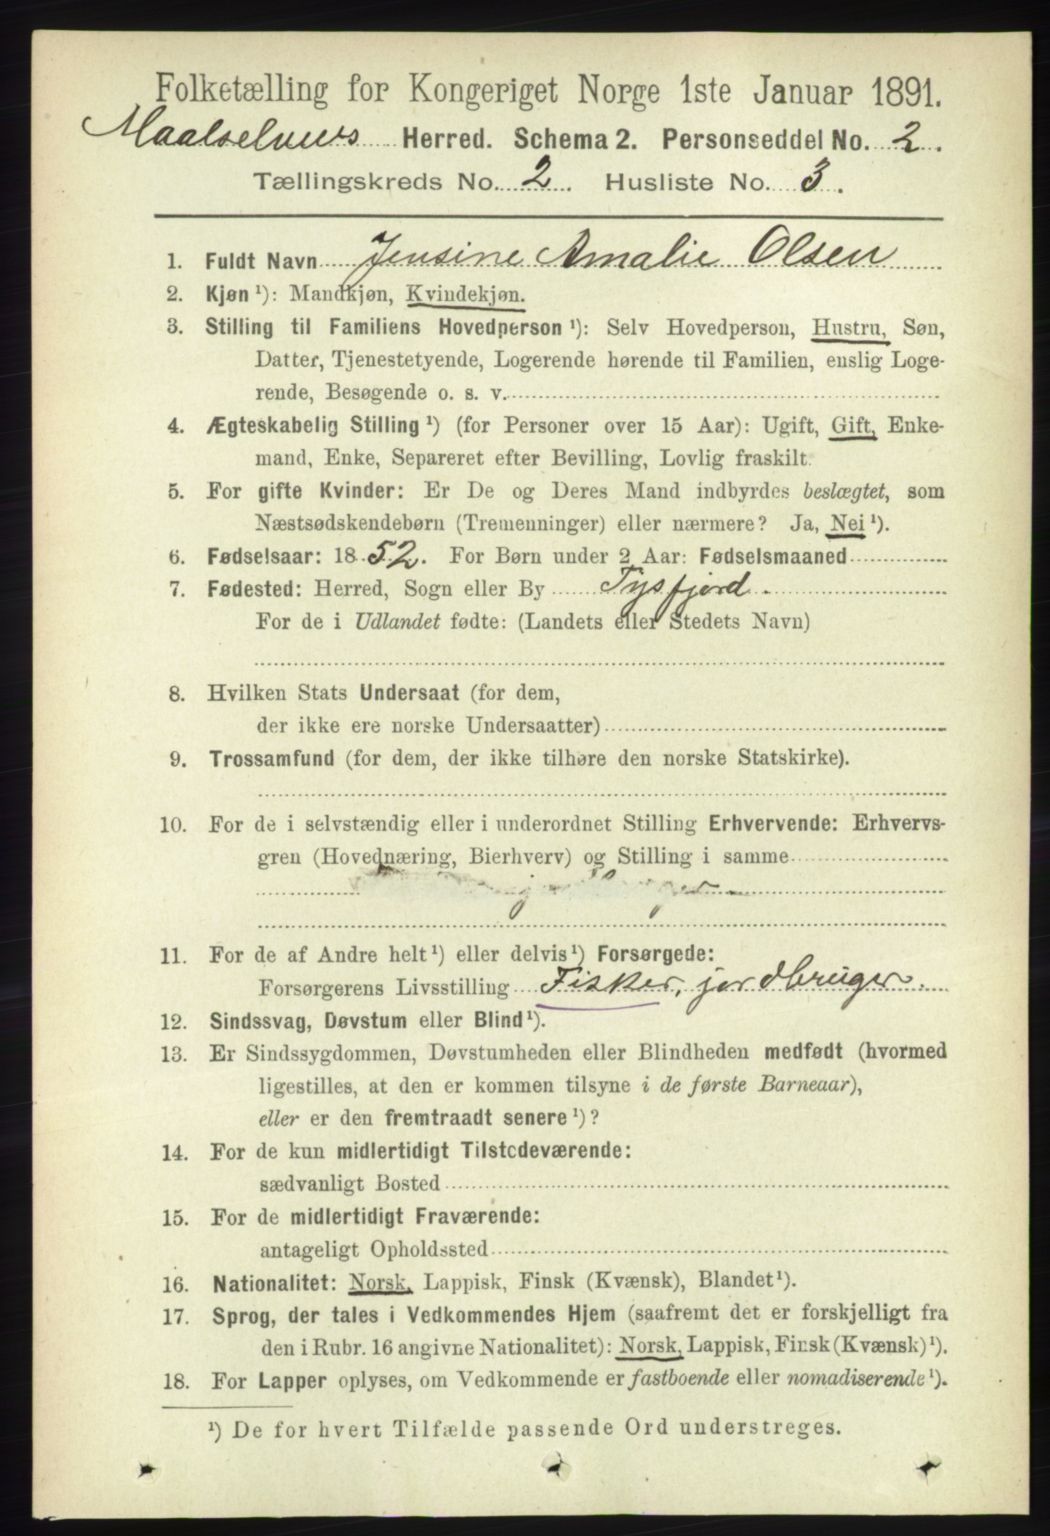 Folketælling for Kongeriget Norge 1ste Januar 1891.
Maalselvens Herred. Schema 2. Personseddel No. 2.
Tællingskreds No. 2. Husliste No. 3.
1. Fuldt Navn Jensine Amalie Olsen
2. Kjøn ¹): Mandkjøn, Kvindekjøn.
3. Stilling til Familiens Hovedperson ¹): Selv Hovedperson, Hustru, Søn,
Datter, Tjenestetyende, Logerende hørende til Familien, enslig Loge-
rende, Besøgende o. s. v.
4. Ægteskabelig Stilling ¹) (for Personer over 15 Aar): Ugift, Gift, Enke-
mand, Enke, Separeret efter Bevilling, Lovlig fraskilt.
5. For gifte Kvinder: Er De og Deres Mand indbyrdes beslægtet, som
Næstsødskendebørn (Tremenninger) eller nærmere? Ja, Nei ¹).
6. Fødselsaar: 1852. For Børn under 2 Aar: Fødselsmaaned
7. Fødested: Herred, Sogn eller By Tysfjord.
For de i Udlandet fødte: (Landets eller Stedets Navn)
8. Hvilken Stats Undersaat (for dem,
der ikke ere norske Undersaatter)
9. Trossamfund (for dem, der ikke tilhøre den norske Statskirke).
10. For de i selvstændig eller i underordnet Stilling Erhvervende: Erhvervs-
gren (Hovednæring, Bierhverv) og Stilling i samme
11. For de af Andre helt ¹) eller delvis ¹) Forsørgede:
Forsørgerens Livsstilling Fisker, jordbruger.
12. Sindssvag, Døvstum eller Blind ¹).
13. Er Sindssygdommen, Døvstumheden eller Blindheden medfødt (hvormed
ligestilles, at den er kommen tilsyne i de første Barneaar),
eller er den fremtraadt senere ¹)?
14. For de kun midlertidigt Tilstedeværende:
sædvanligt Bosted
15. For de midlertidigt Fraværende:
antageligt Opholdssted
16. Nationalitet: Norsk, Lappisk, Finsk (Kvænsk), Blandet ¹).
17. Sprog, der tales i Vedkommendes Hjem (saafremt det er forskjelligt fra
den i Rubr. 16 angivne Nationalitet): Norsk, Lappisk, Finsk (Kvænsk) ¹).
18. For Lapper oplyses, om Vedkommende er fastboende eller nomadiserende ¹).
¹) De for hvert Tilfælde passende Ord understreges.